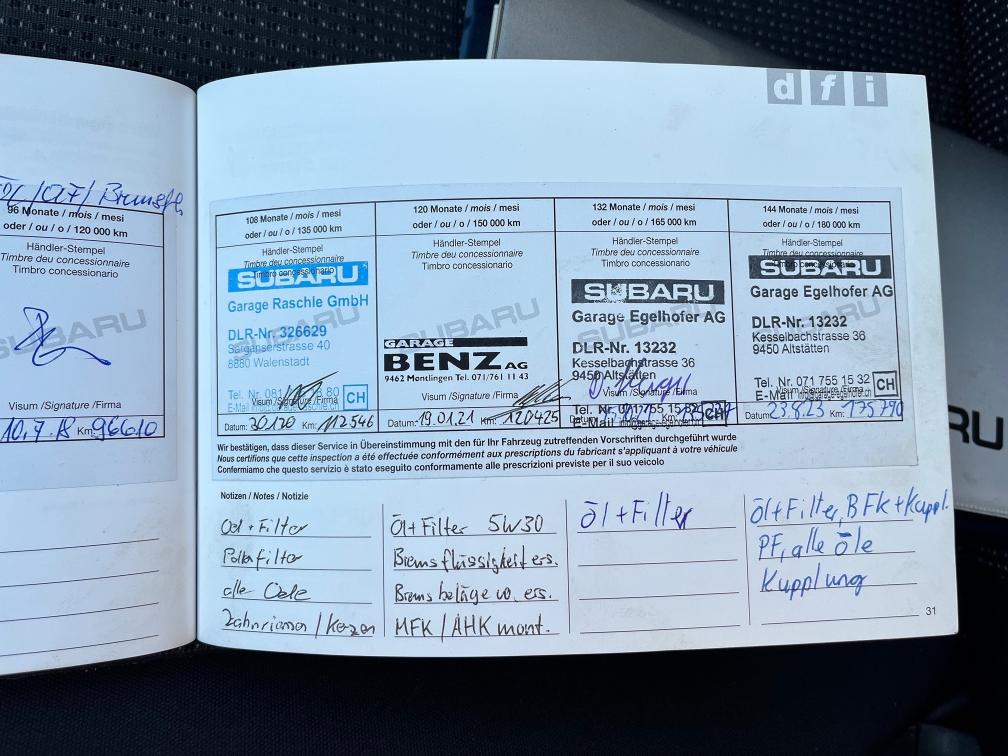 d f i
96 Monate / mois / mesi
oder / ou / o / 120 000 km
Händler-Stempel
Timbre du concessionnaire
Timbro concessionario
SUBARU
Visum /Signature /Firma
Km: 96610
108 Monate / mois / mesi
oder / ou / o / 135 000 km
Händler-Stempel
Timbre du concessionnaire
Timbro concessionario
SUBARU
Garage Raschle GmbH
DLR-Nr. 326629
Sarganserstrasse 40
8880 Walenstadt
Tel. Nr. 081 80
CH
Visum /Signature /Firma
E-Mail
Datum: 30.1.20 Km: 112546
120 Monate / mois / mesi
oder / ou / o / 150 000 km
Händler-Stempel
Timbre du concessionnaire
Timbro concessionario
SUBARU
GARAGE
BENZ AG
9462 Montlingen Tel. 071/761 11 43
Visum /Signature /Firma
Datum: 19.01.21 Km: 120425
132 Monate / mois / mesi
oder / ou / o / 165 000 km
Händler-Stempel
Timbre du concessionnaire
Timbro concessionario
SUBARU
Garage Egelhofer AG
DLR-Nr. 13232
Kesselbachstrasse 36
9450 Altstätten
Visum /Signature /Firma
Tel. Nr. 071 755 15 32
CH
E-Mail
144 Monate / mois / mesi
oder / ou / o / 180 000 km
Händler-Stempel
Timbre du concessionnaire
Timbro concessionario
SUBARU
Garage Egelhofer AG
DLR-Nr. 13232
Kesselbachstrasse 36
9450 Altstätten
Tel. Nr. 071 755 15 32
CH
Visum /Signature /Firma
E-Mail
Datum: 23.8.23 Km: 175790
Wir bestätigen, dass dieser Service in Übereinstimmung mit den für Ihr Fahrzeug zutreffenden Vorschriften durchgeführt wurde
Nous certifions que cette inspection a été effectuée conformément aux prescriptions du fabricant s'appliquant à votre véhicule
Confermiamo che questo servizio è stato eseguito conformamente alle prescrizioni previste per il suo veicolo
Notizen / Notes / Notizie
Oel + Filter
Pollenfilter
alle Oele
Zahnriemen / Kerzen
Öl + Filter 5W30
Bremsflüssigkeit ers.
Bremsbeläge v. ers.
MFK / AHK mont.
Öl + Filter
Öl + Filter, BFK + Kuppl.
PF, alle Öle
Kupplung
31
RU